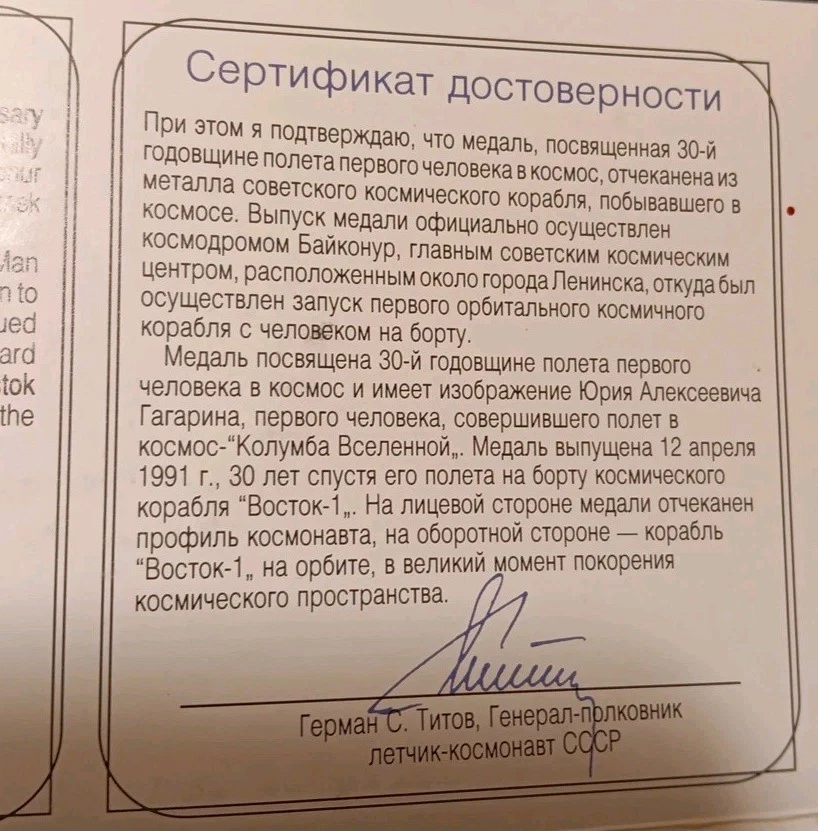 sary
ally
our
nsk
Man
n to
ued
ard
tok
the
Сертификат достоверности
При этом я подтверждаю, что медаль, посвященная 30-й
годовщине полета первого человека в космос, отчеканена из
металла советского космического корабля, побывавшего в
космосе. Выпуск медали официально осуществлен
космодромом Байконур, главным советским космическим
центром, расположенным около города Ленинска, откуда был
осуществлен запуск первого орбитального космичного
корабля с человеком на борту.
Медаль посвящена 30-й годовщине полета первого
человека в космос и имеет изображение Юрия Алексеевича
Гагарина, первого человека, совершившего полет в
космос-“Колумба Вселенной„. Медаль выпущена 12 апреля
1991 г., 30 лет спустя его полета на борту космического
корабля “Восток-1„. На лицевой стороне медали отчеканен
профиль космонавта, на оборотной стороне — корабль
“Восток-1„ на орбите, в великий момент покорения
космического пространства.
Герман С. Титов, Генерал-полковник
летчик-космонавт СССР